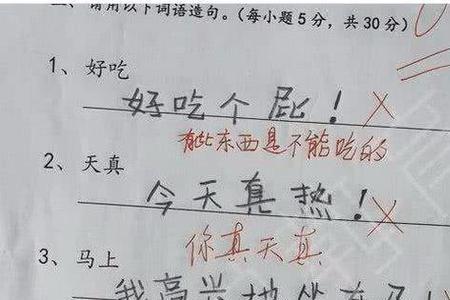 请用以下词语造句。(每小题5分，共30分)
1、好吃
好吃个屁！
有些东西是不能吃的
2、天真
今天真热！
你真天真
3、马上
我高兴地坐在马上